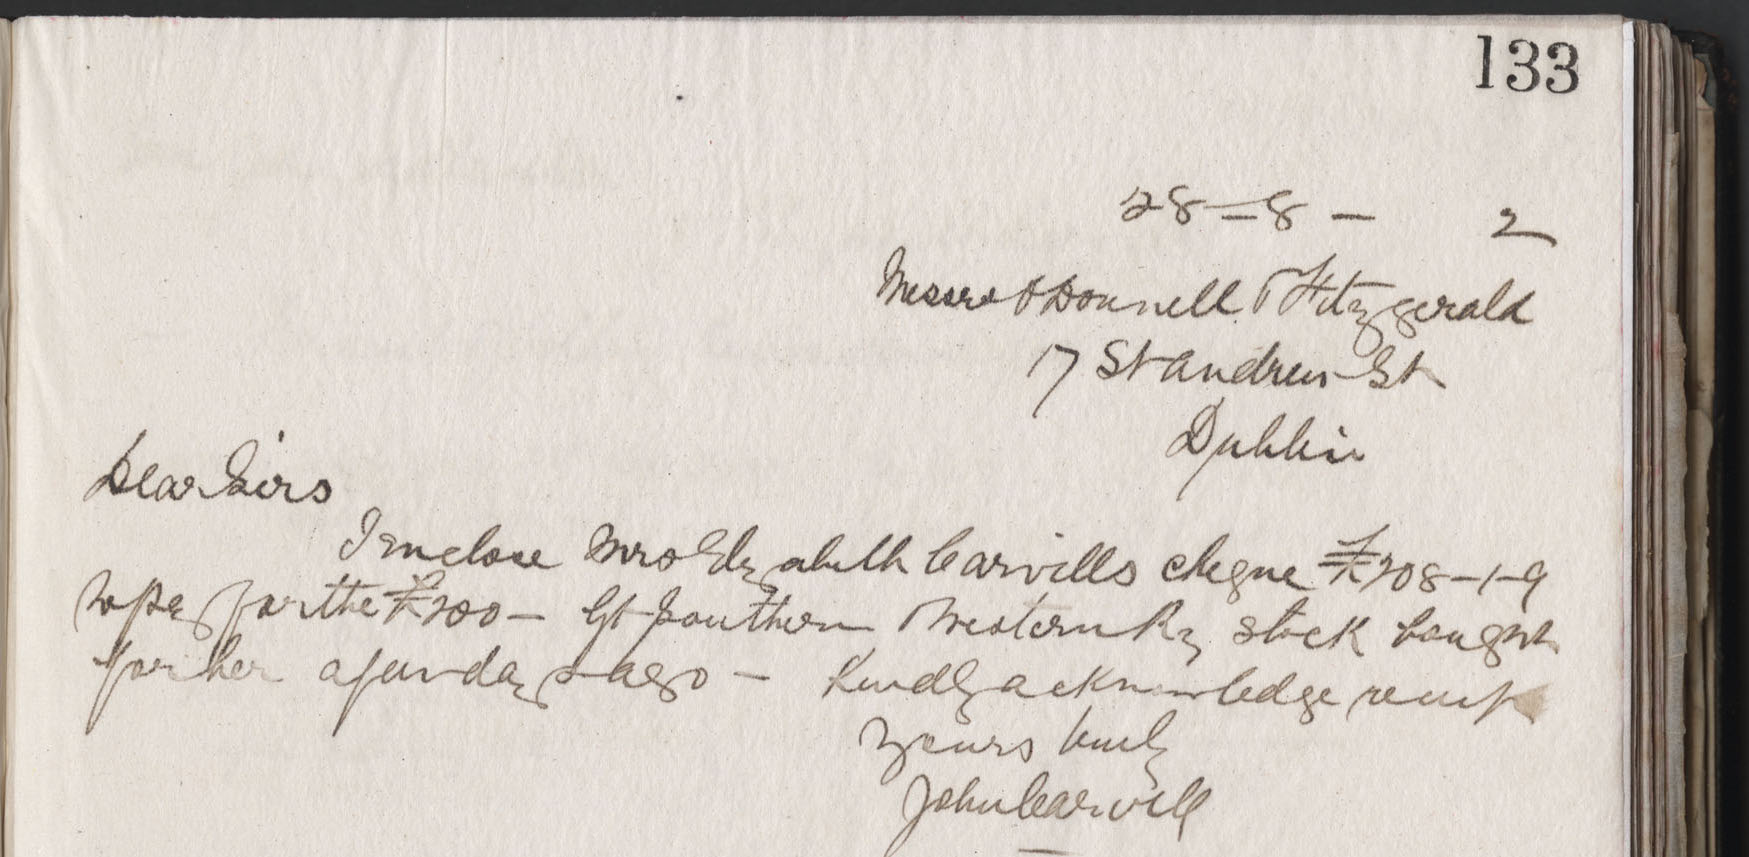 133
28-8- 2
Messrs O'Donnell & Fitzgerald
17 St Andrew St
Dublin
Dear Sirs
I enclose Mrs Elizabeth Carvills cheque £208-1-9
to pay for the £200- Gt Southern & Western Ry stock bought
for her a few days ago - Kindly acknowledge receipt
Yours truly
John Carvill